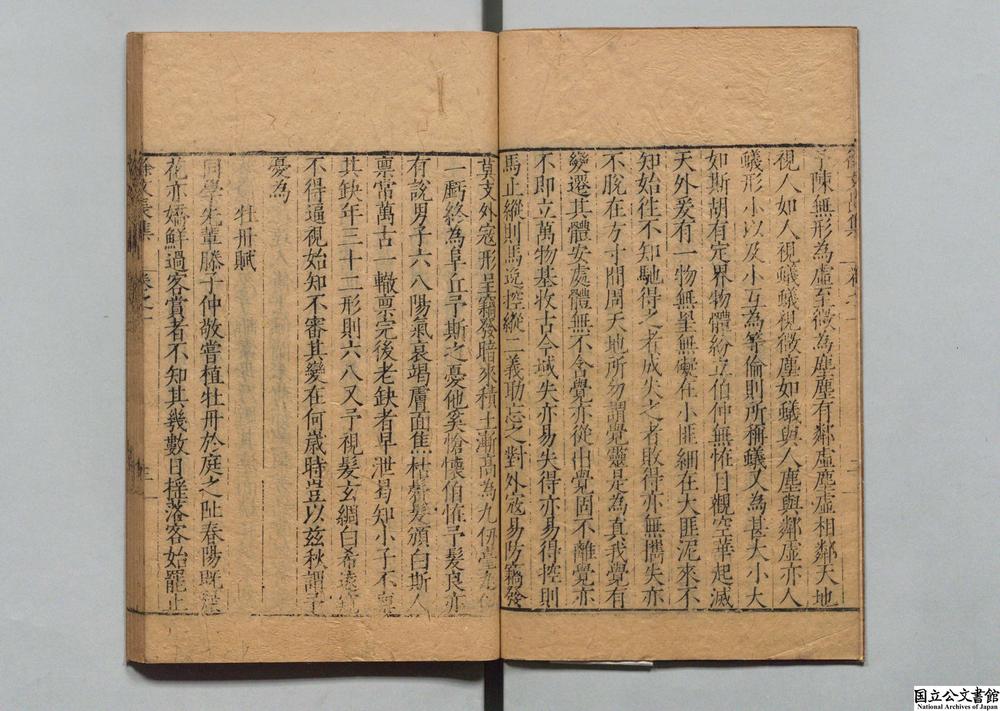 爭陳無形為虛至微為塵塵有鄰虛塵虛相鄰天地
視人如人視蟻蟻視微塵如蟻與人塵與鄰虛亦人
蟻形小以及小互為等倫則所稱蟻又為甚大小大
如斯胡有定界物體紛立伯仲無恠目觀空華起滅
天外爰有一物無罣無礙在小匪細在大匪泥來不
知始徃不知馳得之者成失之者敗得亦無攜失亦
不脫在方寸間周天地所勿謂覺靈是為真我覺有
變遷其體安處體無不含覺亦從出覺固不離覺亦
不即立萬物基收古今域失亦易失得亦易得控則
馬止縱則馬逸控縱二義助忘之對外寇易防竊發
莫支外寇形呈竊發暗來積土漸高為九仞臺九仞
一虧終為阜丘予斯之憂他奚愴懷伯恠予髮良亦
有說男子六八陽氣衰竭膚面焦枯鬢髮頒白斯人
稟常萬古一轍稟完後老缺者早泄曷知小子不稟
其缺年三十二形則六八又予視髮玄綢白希遠
不得逼視始知不審其變在何歲時豈以兹秋謂予
憂為
牡丹賦
同學先輩滕子仲敬嘗植牡丹於庭之阯春陽既
花亦嬌鮮過客賞者不知其幾數日搖落客始罷止
徐文長集
卷之一
国立公文書館
National Archives of Japan